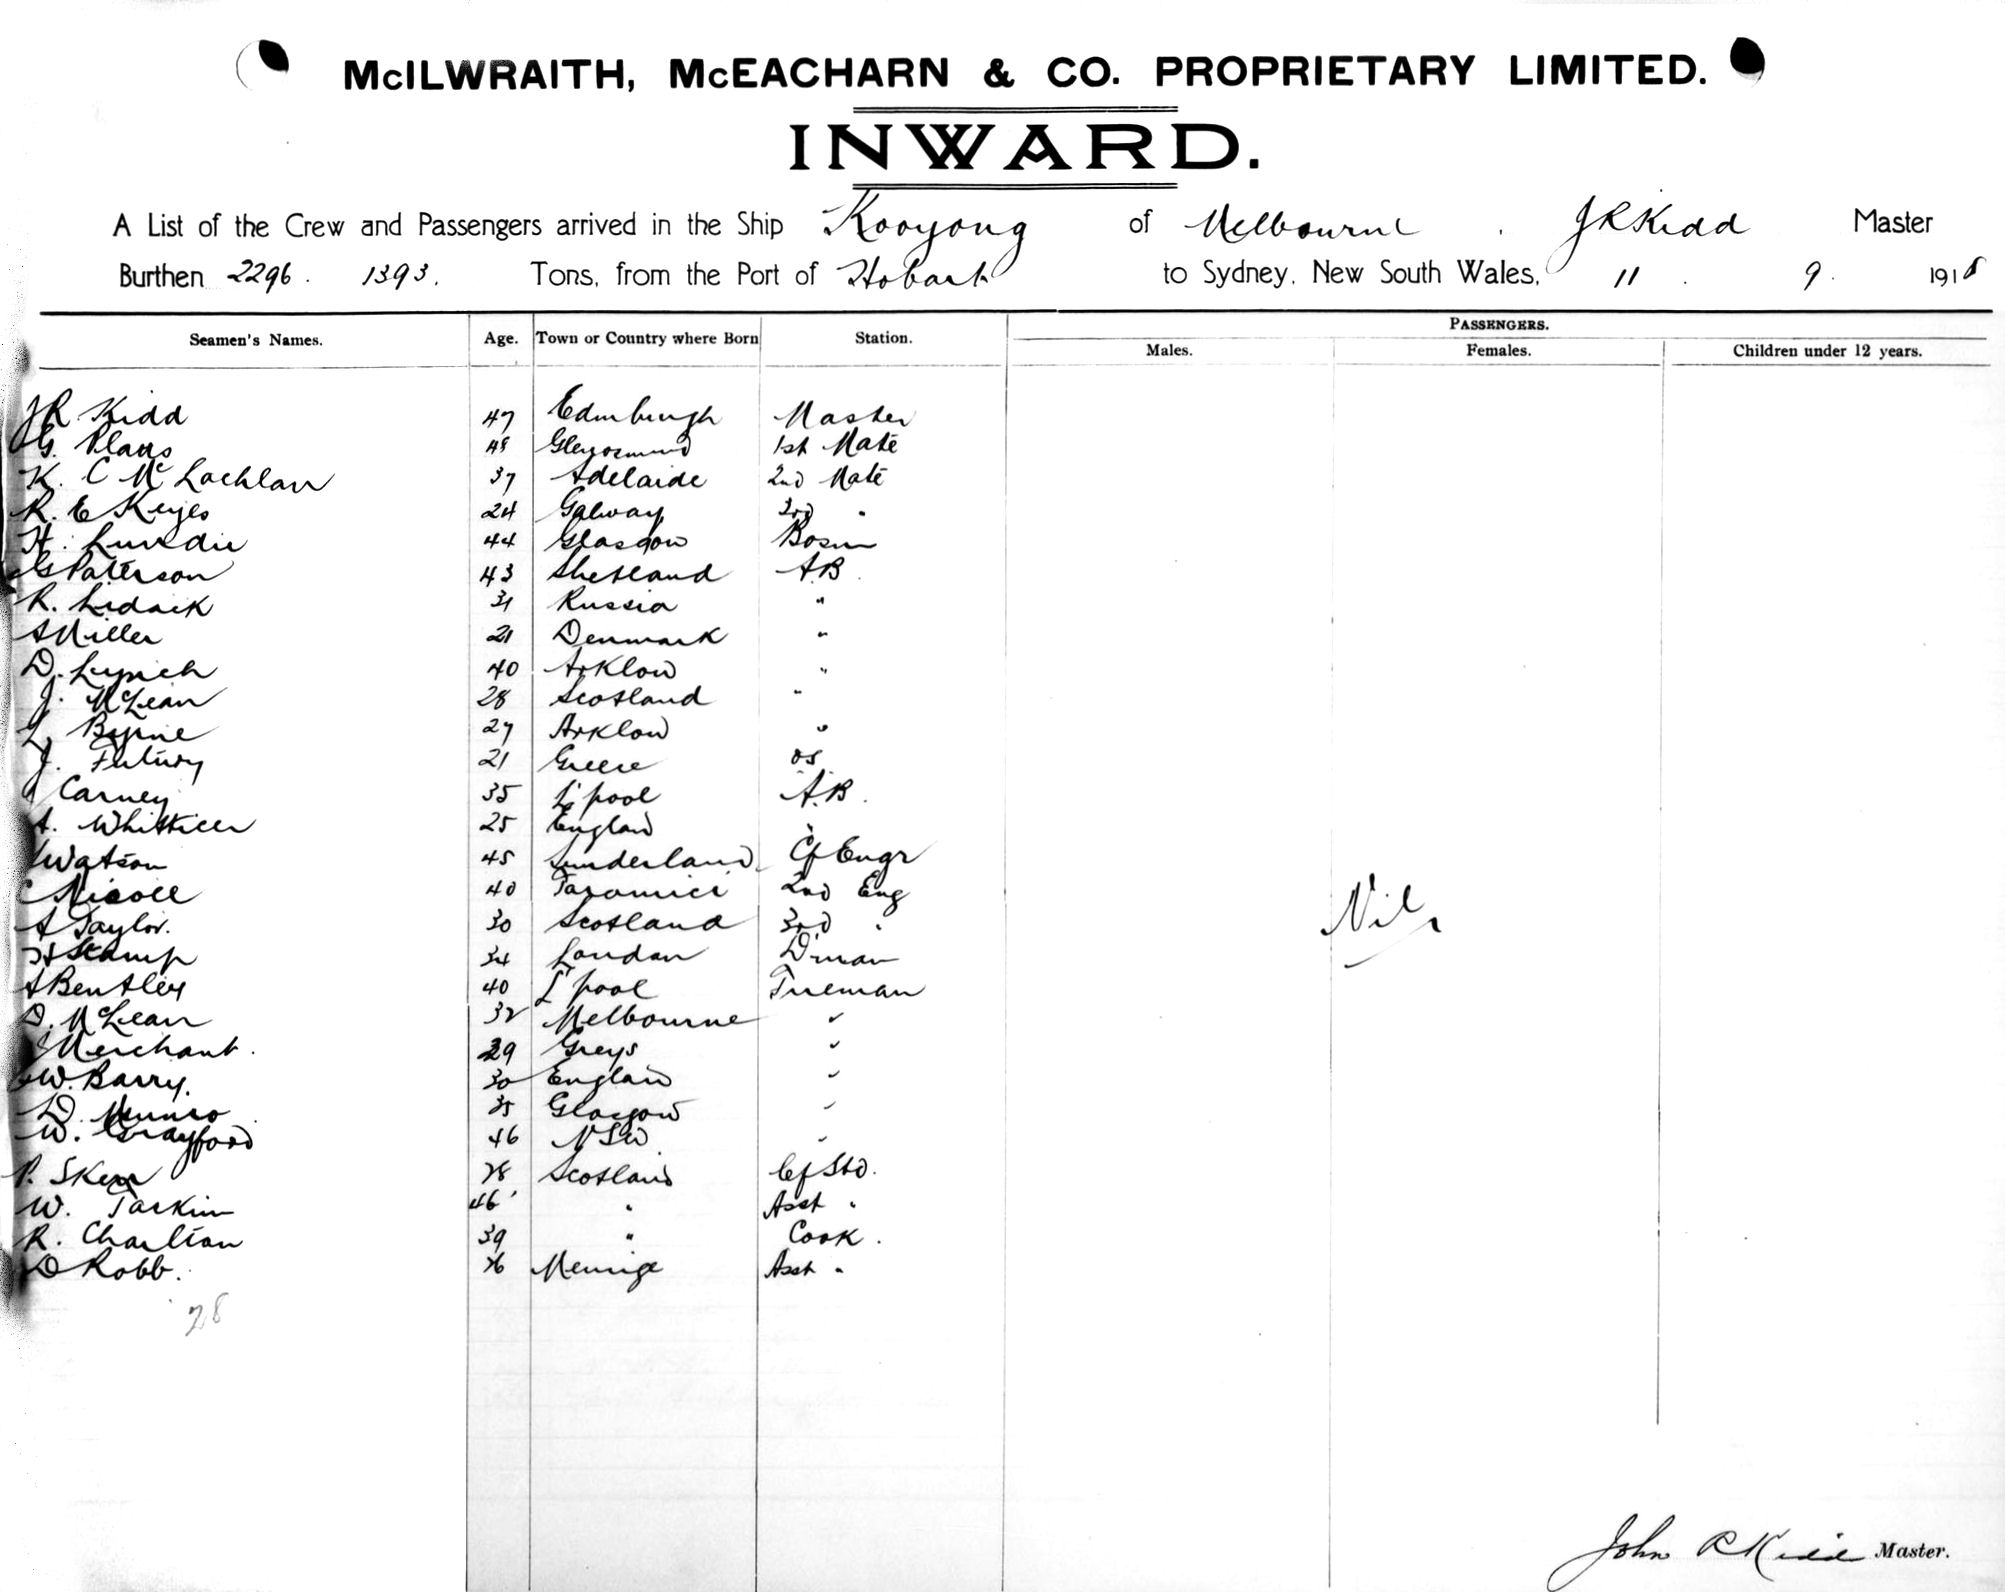 McILWRAITH, McEACHARN & CO. PROPRIETARY LIMITED.
INWARD.
A List of the Crew and Passengers arrived in the Ship Kooyong of Melbourne. J R Kidd Master
Burthen 2296. 1393. Tons, from the Port of Hobart to Sydney, New South Wales, 11. 9. 1918
Seamen's Names. Age. Town or Country where Born Station. PASSENGERS.
Males. Females. Children under 12 years.
J R Kidd 47 Edinburgh Master
G. 48 1st Mate
K. C McLachlan 37 Adelaide 2nd Mate
R. E Keyes 24 Galway 3rd "
H. Lundie 44 Glasgow Bosun
G Paterson 43 Shetland A.B.
R. 31 Russia "
A Miller 21 Denmark "
D. Lynch 40 Arklow "
J. McLean 28 Scotland "
L. Byrne 27 Arklow "
J. 21 Greece OS
J Carney 35 L'pool A.B.
A. 25 England "
J Watson 45 Sunderland Cf Engr
C Nicoll 40 2nd Eng
A Taylor. 30 Scotland 3rd "
H Stamp 34 London D'man
A Bentley 40 L'pool Fireman
D. McLean 32 Melbourne "
J Merchant. 29 Greys "
W. Barry. 30 England "
D. Munro 35 Glasgow "
W. Grayford 46 NSW "
P. Skerr 28 Scotland Cf Std.
W. 46 " Asst "
R. Charlton 39 " Cook.
D Robb. 26 Asst "
Nil
28
John R Kidd Master.